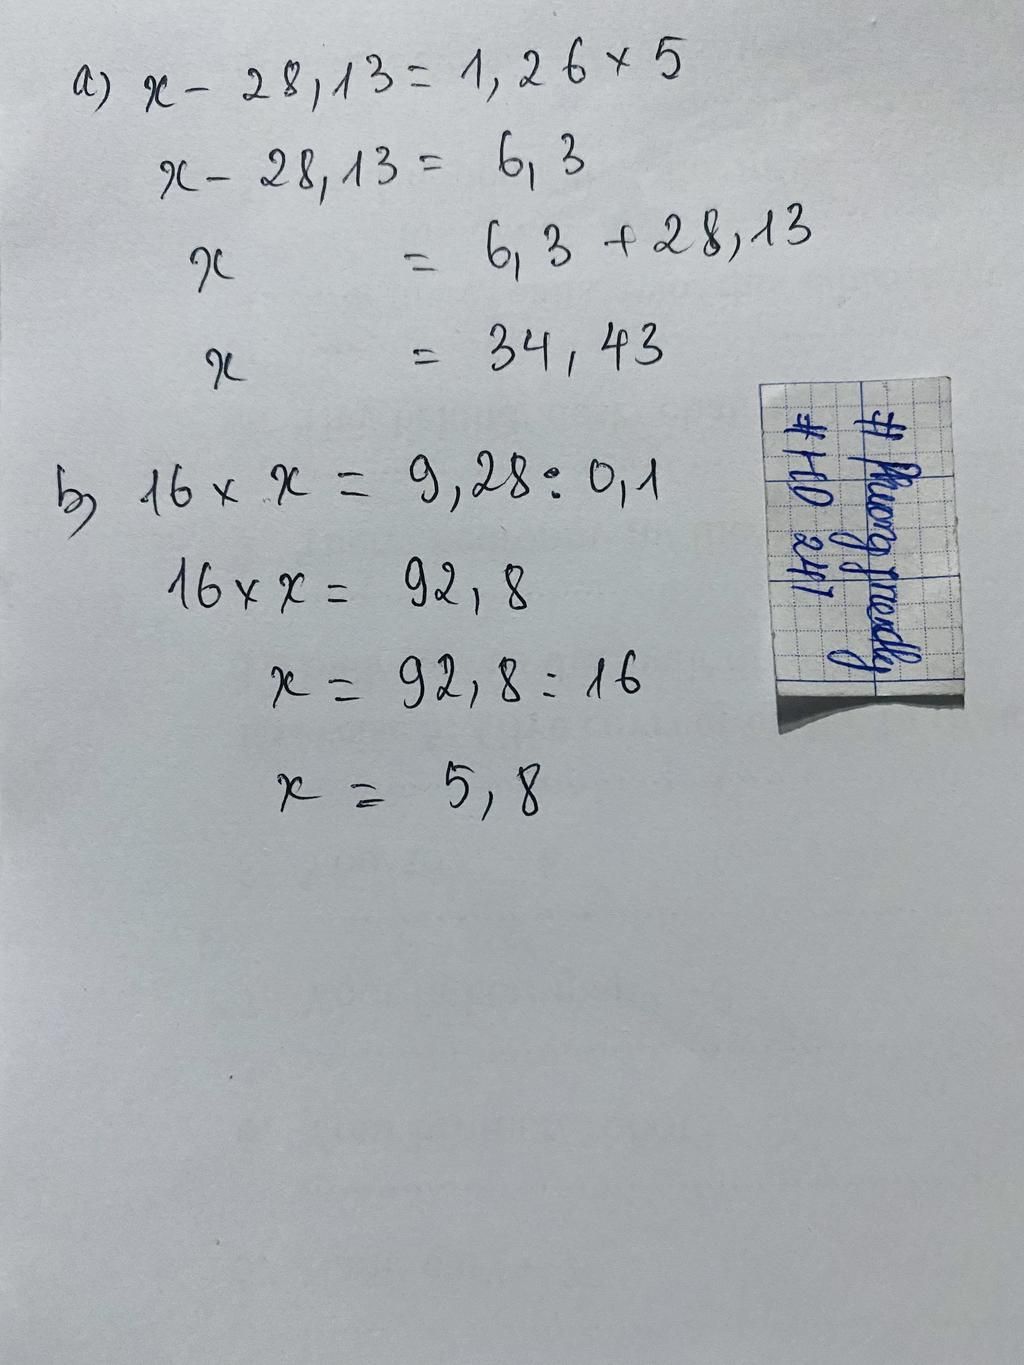 a) x - 28,13 = 1,26 × 5
x - 28,13 = 6,3
x = 6,3 + 28,13
x = 34,43
b) 16 × x = 9,28 : 0,1
16 × x = 92,8
x = 92,8 : 16
x = 5,8
# Phuong friendly
# HD 247